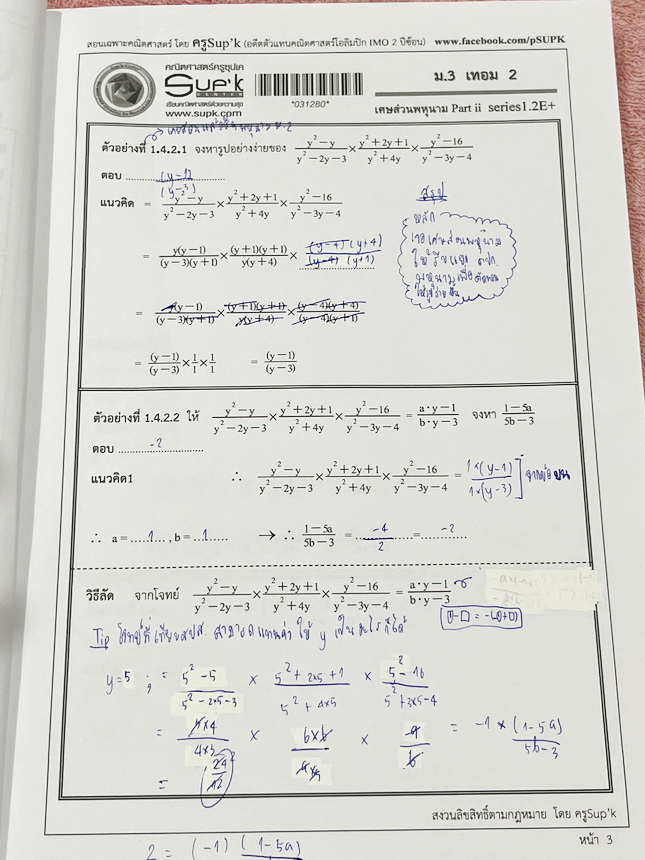 สอนเฉพาะคณิตศาสตร์ โดย ครูSup'k (อดีตตัวแทนคณิตศาสตร์โอลิมปิก IMO 2 ปีซ้อน) www.facebook.com/pSUPK
คณิตศาสตร์ครูซุปเค
Sup'k
CENTER
เรียนคณิตศาสตร์ด้วยความสุข
www.supk.com
*031280*
ม.3 เทอม 2
เศษส่วนพหุนาม Part ii series1.2E+
ตัวอย่างที่ 1.4.2.1 จงหารูปอย่างง่ายของ (y²−y)/(y²−2y−3) × (y²+2y+1)/(y²+4y) × (y²−16)/(y²−3y−4)
ตอบ (y-1)/(y-3)
แนวคิด = (y²−y)/(y²−2y−3) × (y²+2y+1)/(y²+4y) × (y²−16)/(y²−3y−4)
= y(y−1)/(y−3)(y+1) × (y+1)(y+1)/y(y+4) × (y-4)(y+4)/(y-4)(y+1)
= y(y−1)/(y−3)(y+1) × (y+1)(y+1)/y(y+4) × (y−4)(y+4)/(y−4)(y+1)
= (y−1)/(y−3) × 1/1 × 1/1 = (y−1)/(y−3)
สรุป
หลัก
เจอเศษส่วนพหุนาม
ให้รีบแยก
พหุนามเพื่อตัดทอน
ตัวอย่างที่ 1.4.2.2 ให้ (y²−y)/(y²−2y−3) × (y²+2y+1)/(y²+4y) × (y²−16)/(y²−3y−4) = (a·y−1)/(b·y−3) จงหา (1−5a)/(5b−3)
ตอบ -2
แนวคิด1 ∴ (y²−y)/(y²−2y−3) × (y²+2y+1)/(y²+4y) × (y²−16)/(y²−3y−4) = 1×(y-1)/1×(y-3) จากข้อบน
∴ a = 1 , b = 1 → ∴ (1−5a)/(5b−3) = -4/2 = -2
วิธีลัด จากโจทย์ (y²−y)/(y²−2y−3) × (y²+2y+1)/(y²+4y) × (y²−16)/(y²−3y−4) = (a·y−1)/(b·y−3)
Tip โจทย์ที่เทียบสปส. สามารถแทนค่า ให้ y เป็นอะไรก็ได้
y=5 ; = (5²-5)/(5²-2×5-3) × (5²+2×5+1)/(5²+4×5) × (5²-16)/(5²+3×5-4)
= -1 × (1-5a)/(5b-3)
2 = (-1) (1-5a)
สงวนลิขสิทธิ์ตามกฎหมาย โดย ครูSup'k
หน้า 3